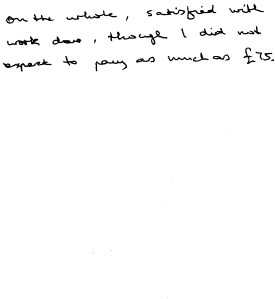 on the whole, satisfied with
work done, though I did not
expect to pay as much as £75.